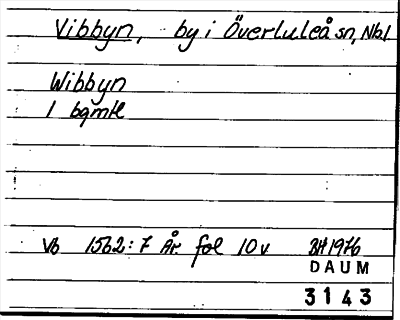 Vibbyn, by i Överluleå sn, Nbl
Wibbyn
1 bgmtl
Vb 1562:7 År fol 10 v BH 1976
DAUM
3143